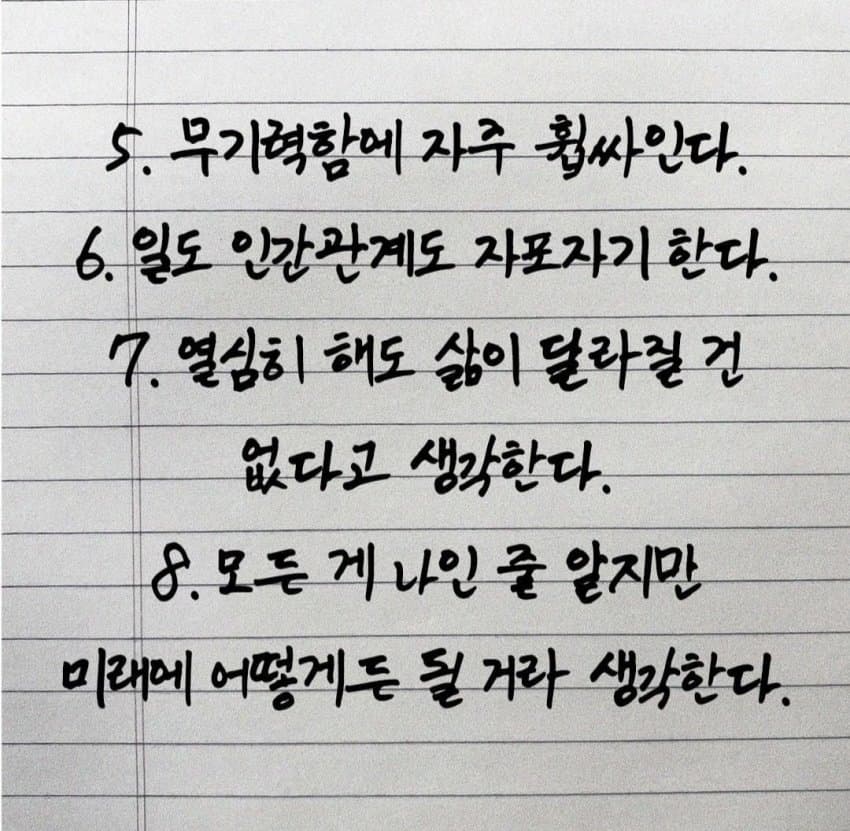 5. 무기력함에 자주 휩싸인다.
6. 일도 인간관계도 자포자기 한다.
7. 열심히 해도 삶이 달라질 건
없다고 생각한다.
8. 모든 게 나인 줄 알지만
미래에 어떻게든 될 거라 생각한다.